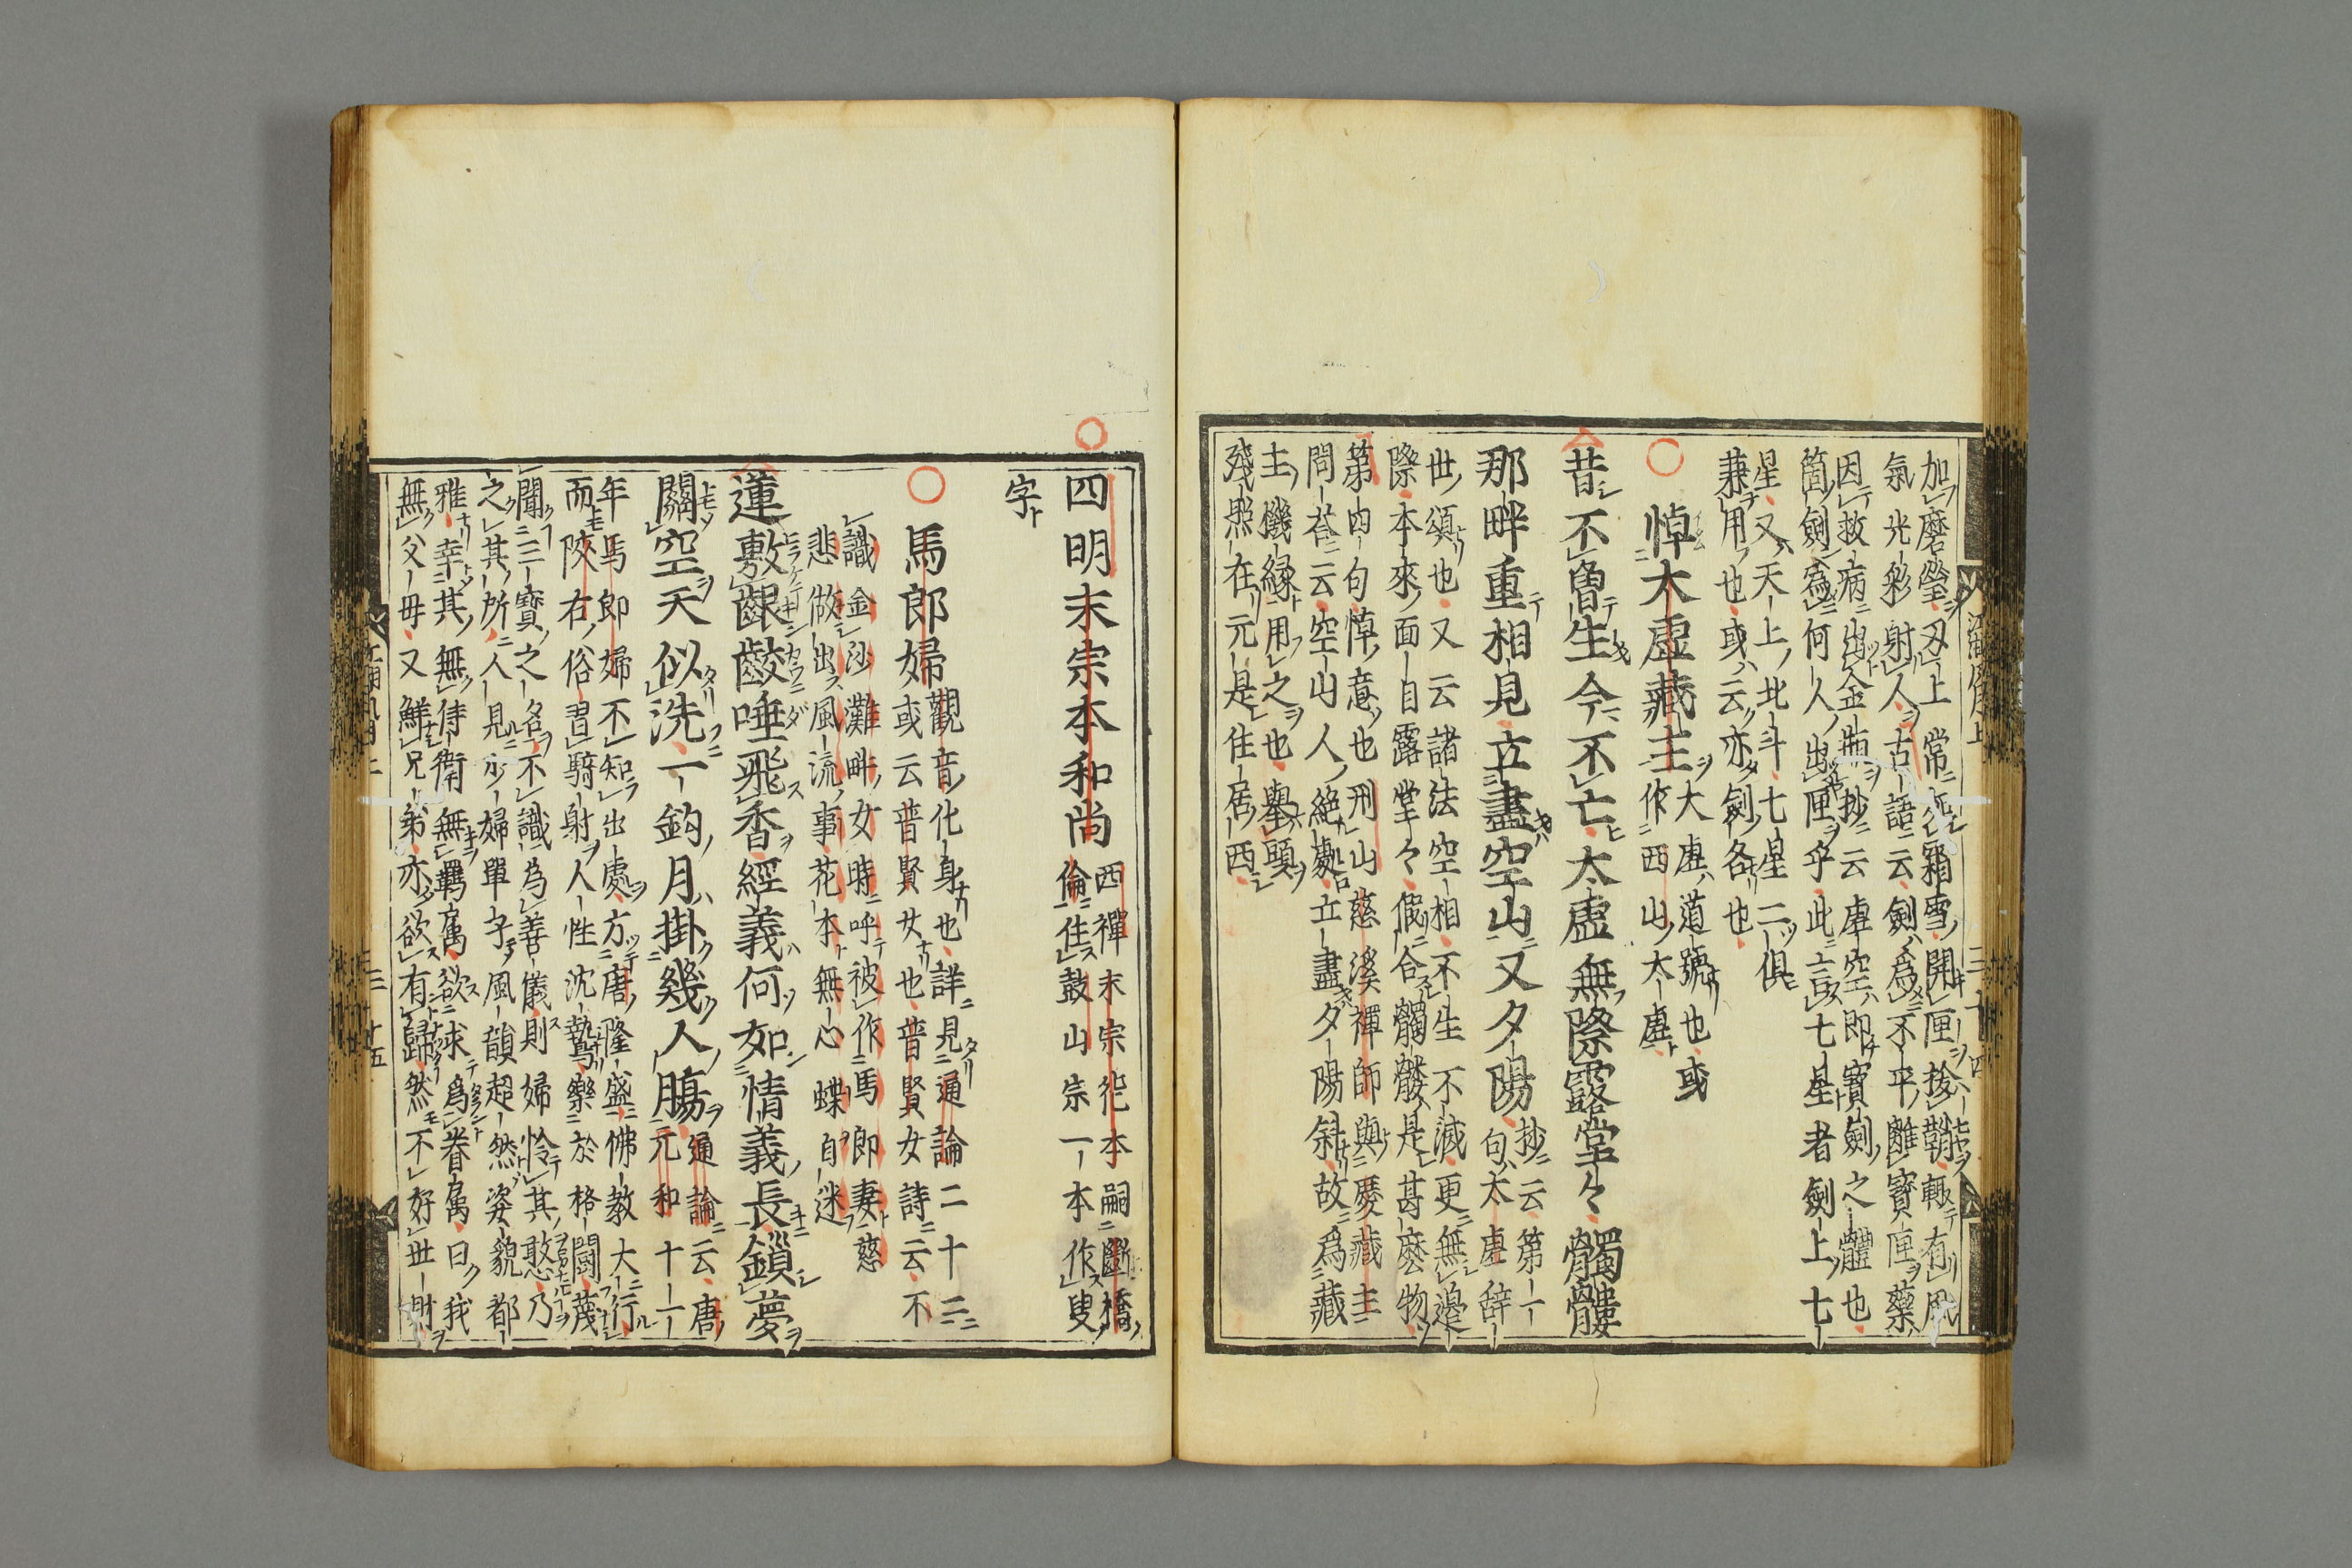 加磨瑩刃上常若霜雪開匣拔鞘輙有風
氣光彩射人古語云劍為不平離寶匣藥
因救病出金瓶抄云虛空即寶劍之體也
箇劍為何人出匣乎此言七星者劍上七
星又天上北斗七星二俱
兼用也或云亦劍名也
悼大虛藏主大虛道號也或
作西山大虛
昔不魯生今不亡太虛無際露堂々髑髏
那畔重相見立盡空山又夕陽抄云第一
句太虛辞
世頌也又云諸法空相不生不滅更無邊
際本來面目露堂々假合髑髏是甚麽物
第四句悼意也刑山慈溪禪師與慶藏主
問荅云空山人絕處立盡夕陽斜故為藏
主機緣用之也舉頭
殘照在元是住居西
四明末宗本和尚西禪末宗能本嗣斷橋
倫住鼓山宗一本作叟
字
馬郎婦觀音化身也詳見通論二十二
或云普賢女也普賢女詩云不
識金沙灘畔女時呼被作馬郎妻慈
悲做出風流事花本無心蝶自迷
蓮敷齦齩唾飛香經義何如情義長鎖夢
關空天似洗一鈎月掛幾人腸通論云唐
元和十一
年馬郎婦不知出處方唐隆盛佛教大行
而陝右俗習騎射人性沈鷙樂於格鬪蔑
聞三寶之名不識為善儀則婦怜其憨乃
之其所人見永婦單孑風韻超然姿貌都
雅幸其無侍衛無羈属欲求為眷属曰我
無父母又鮮兄弟亦欲有歸然不好世財